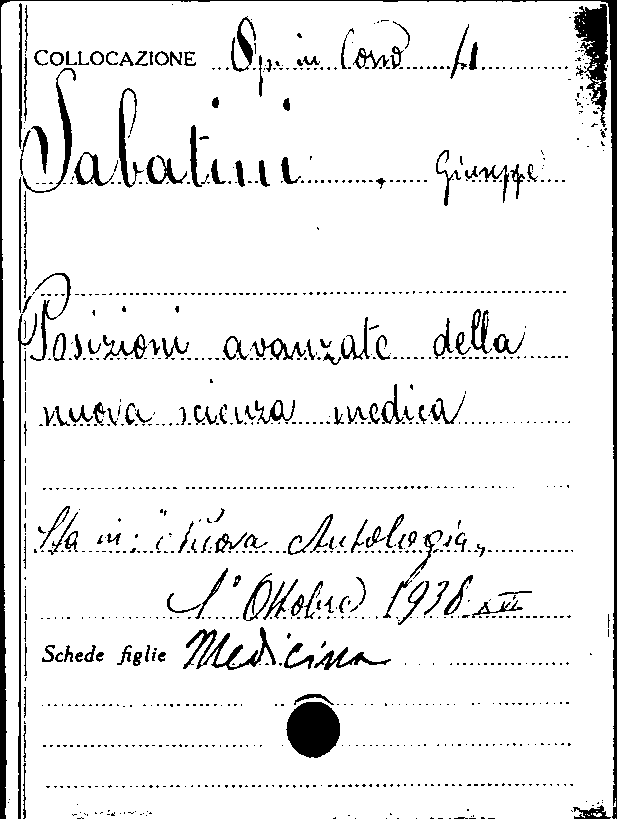 COLLOCAZIONE Op. in Corso
Sabatini, Giuseppe
Posizioni avanzate della
nuova scienza medica
Sta in: "Nuova Antologia„
1° Ottobre 1938 XVI
Schede figlie Medicina